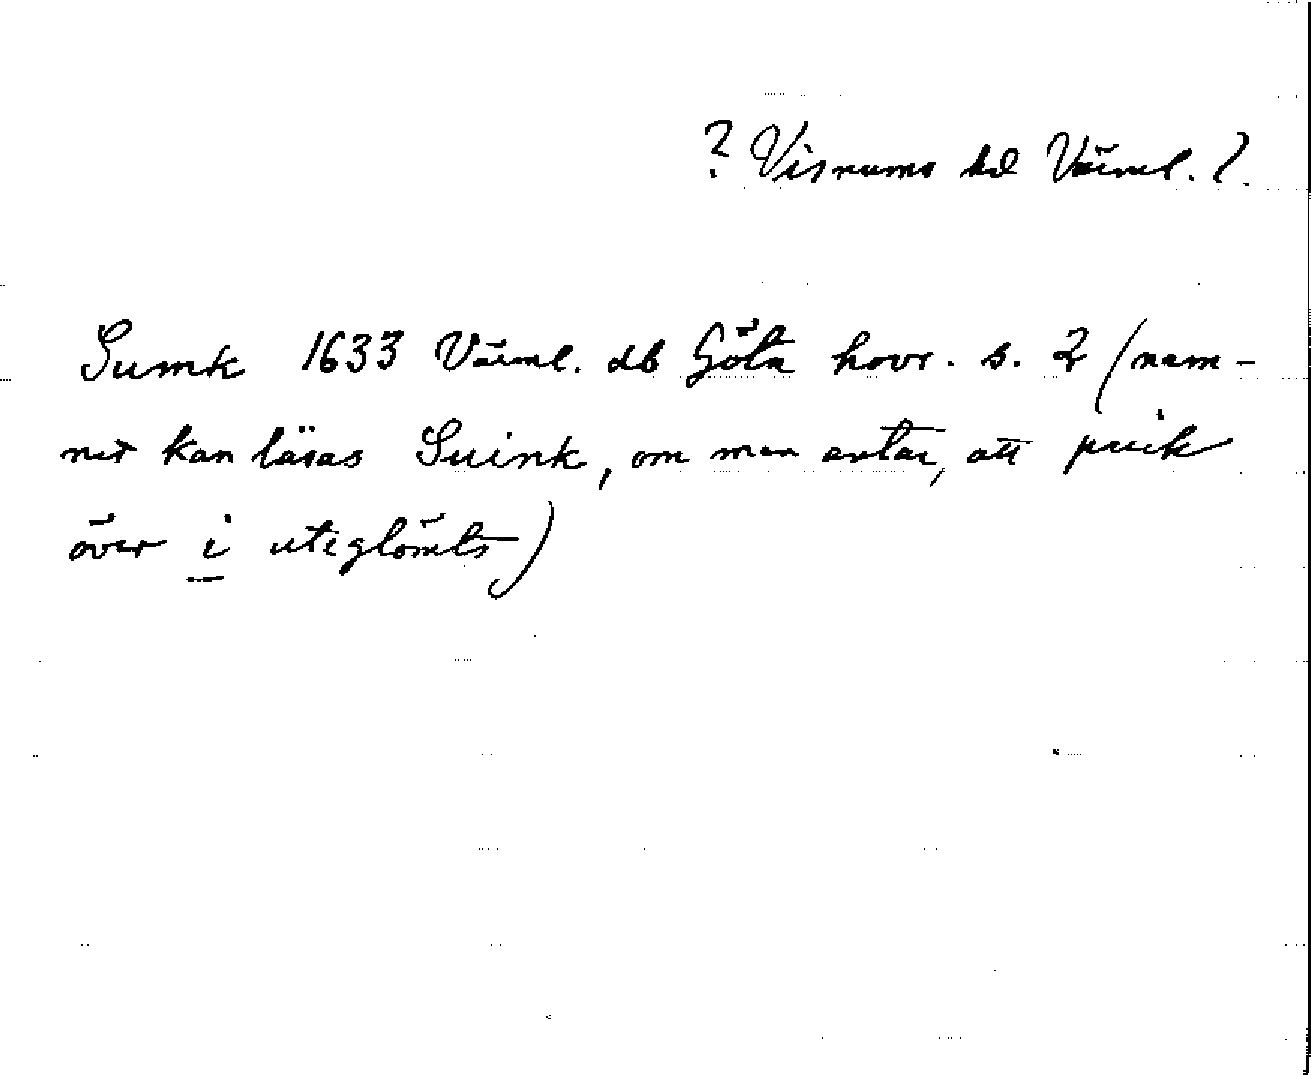 ? Visnums hd Värml. ?
Sumk 1633 Värml. db Göta hovr. s. 2 (nam-
net kan läsas Suink, om man antar, att prick
över i uteglömts)